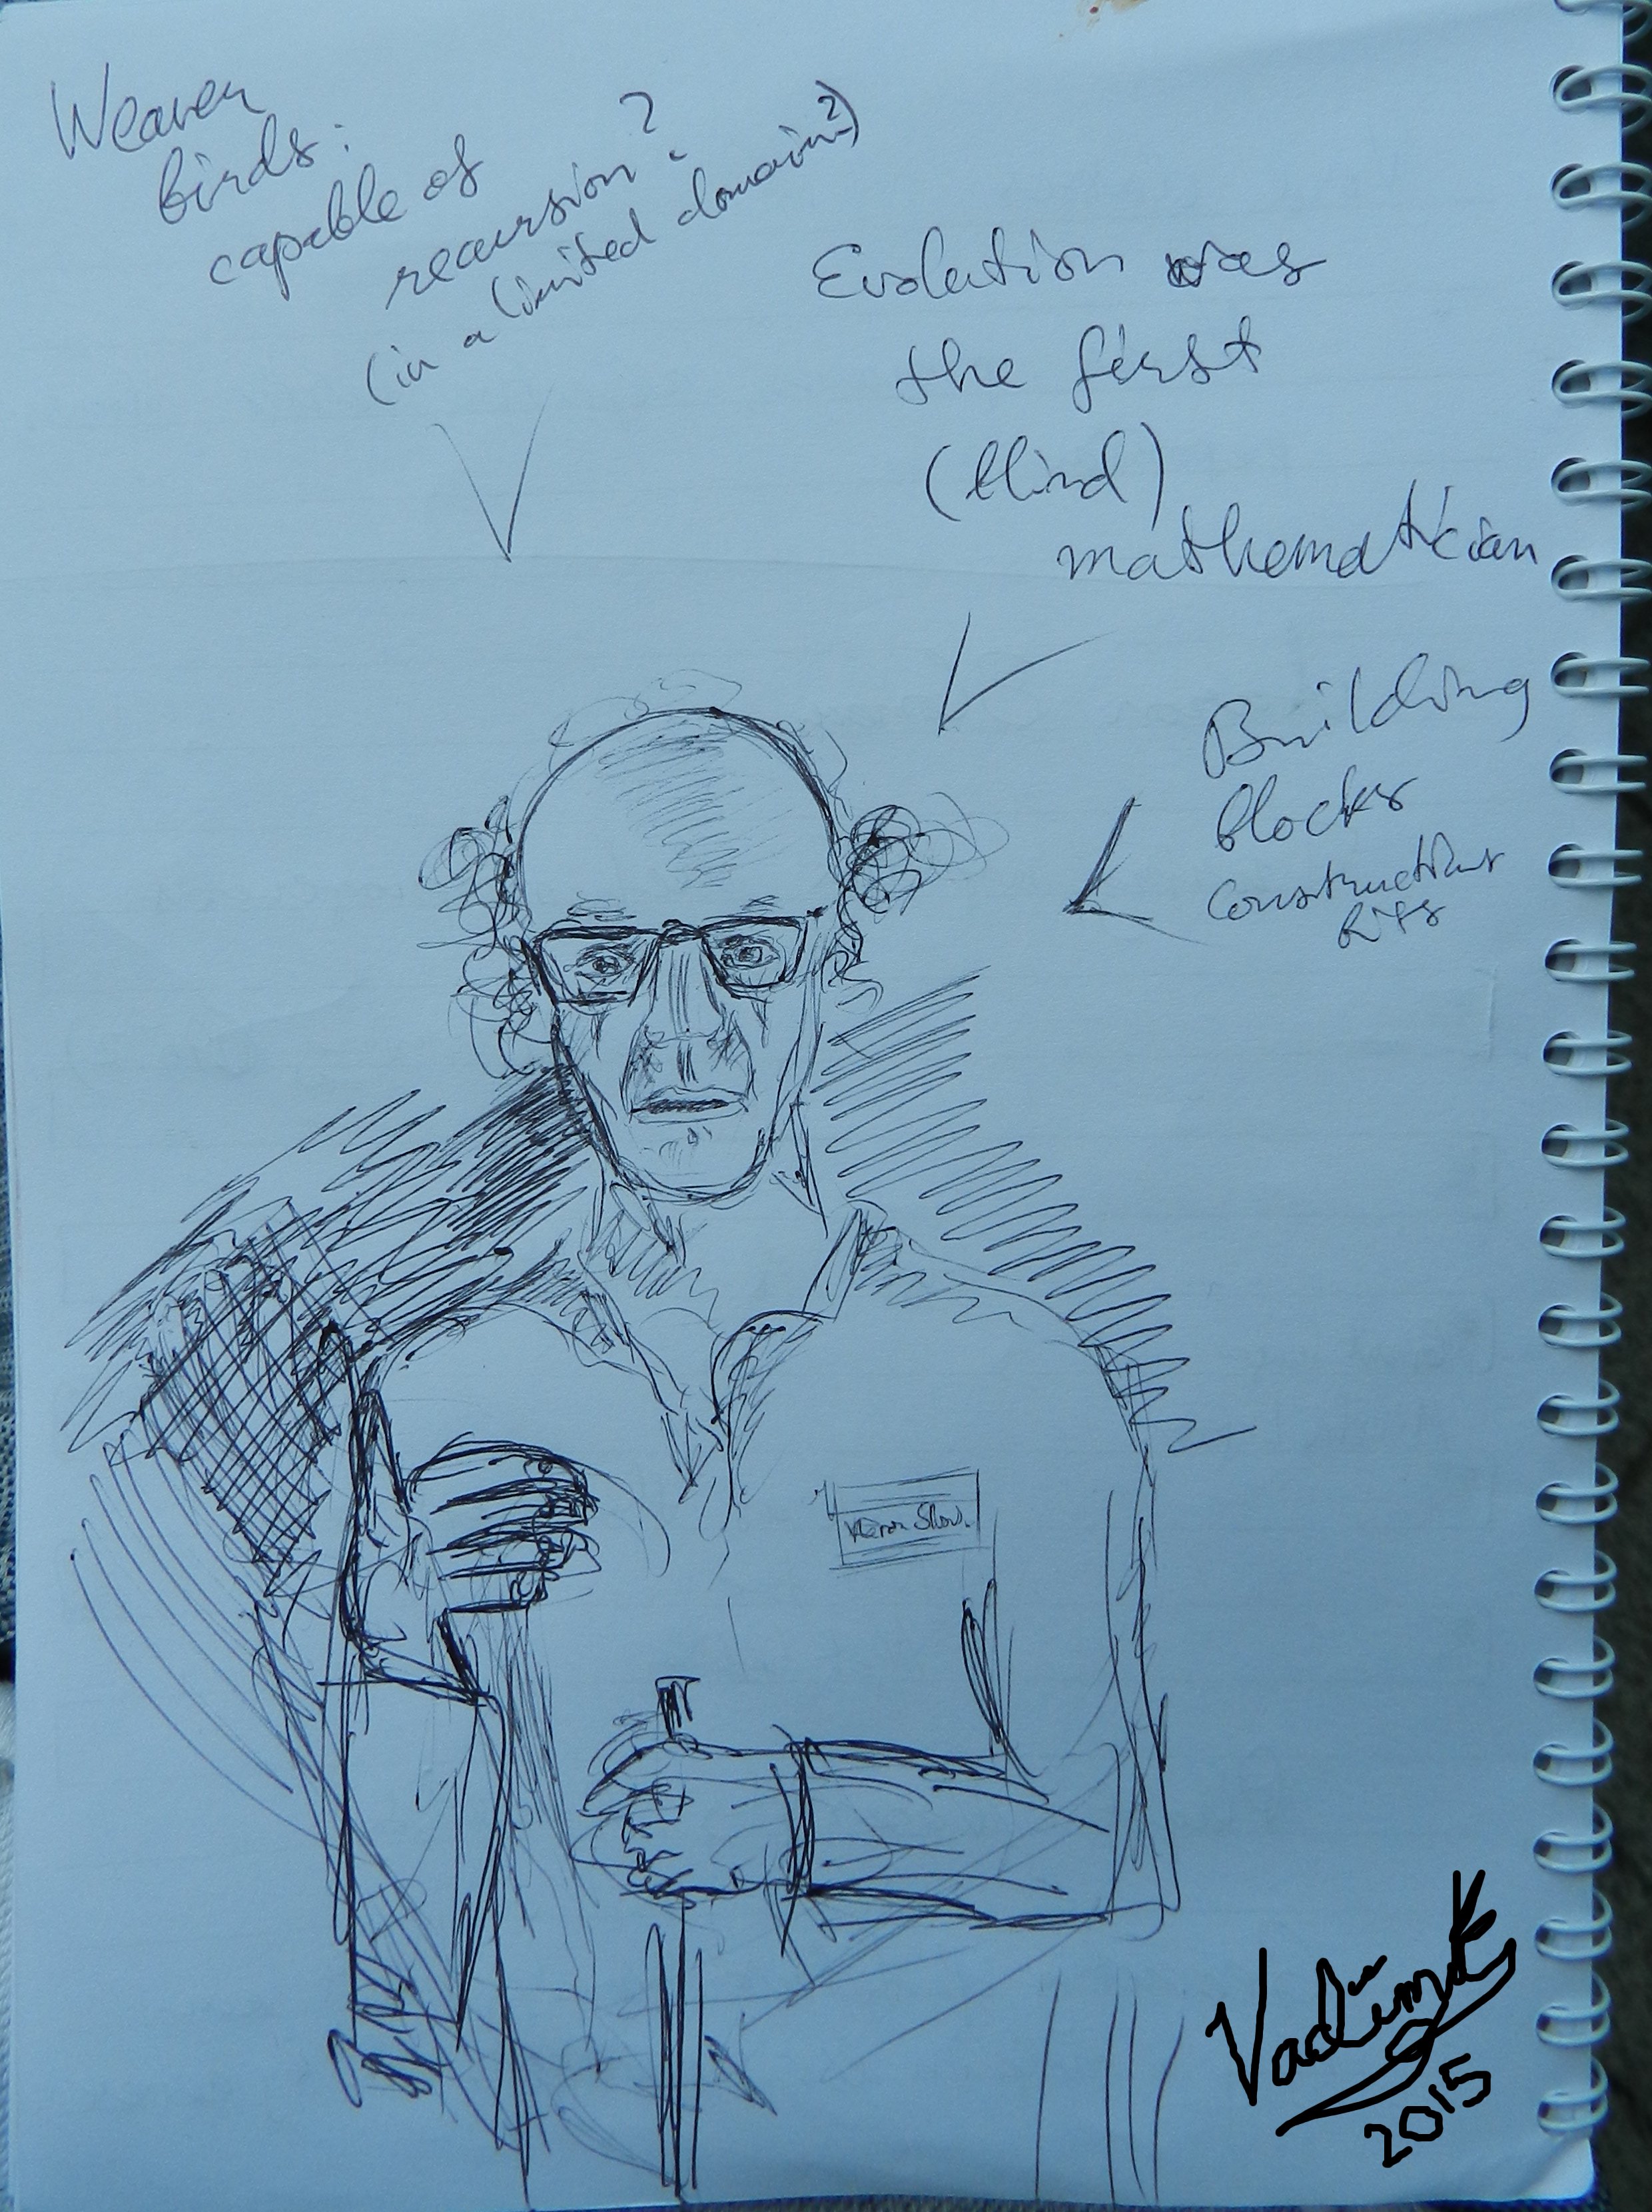 Weaver
birds:
capable of
recursion?
(in a limited domain?)
Evolution was
the first
(blind)
mathematician
Building
blocks
Construction
kits
Aaron Slom.
VadimK
2015